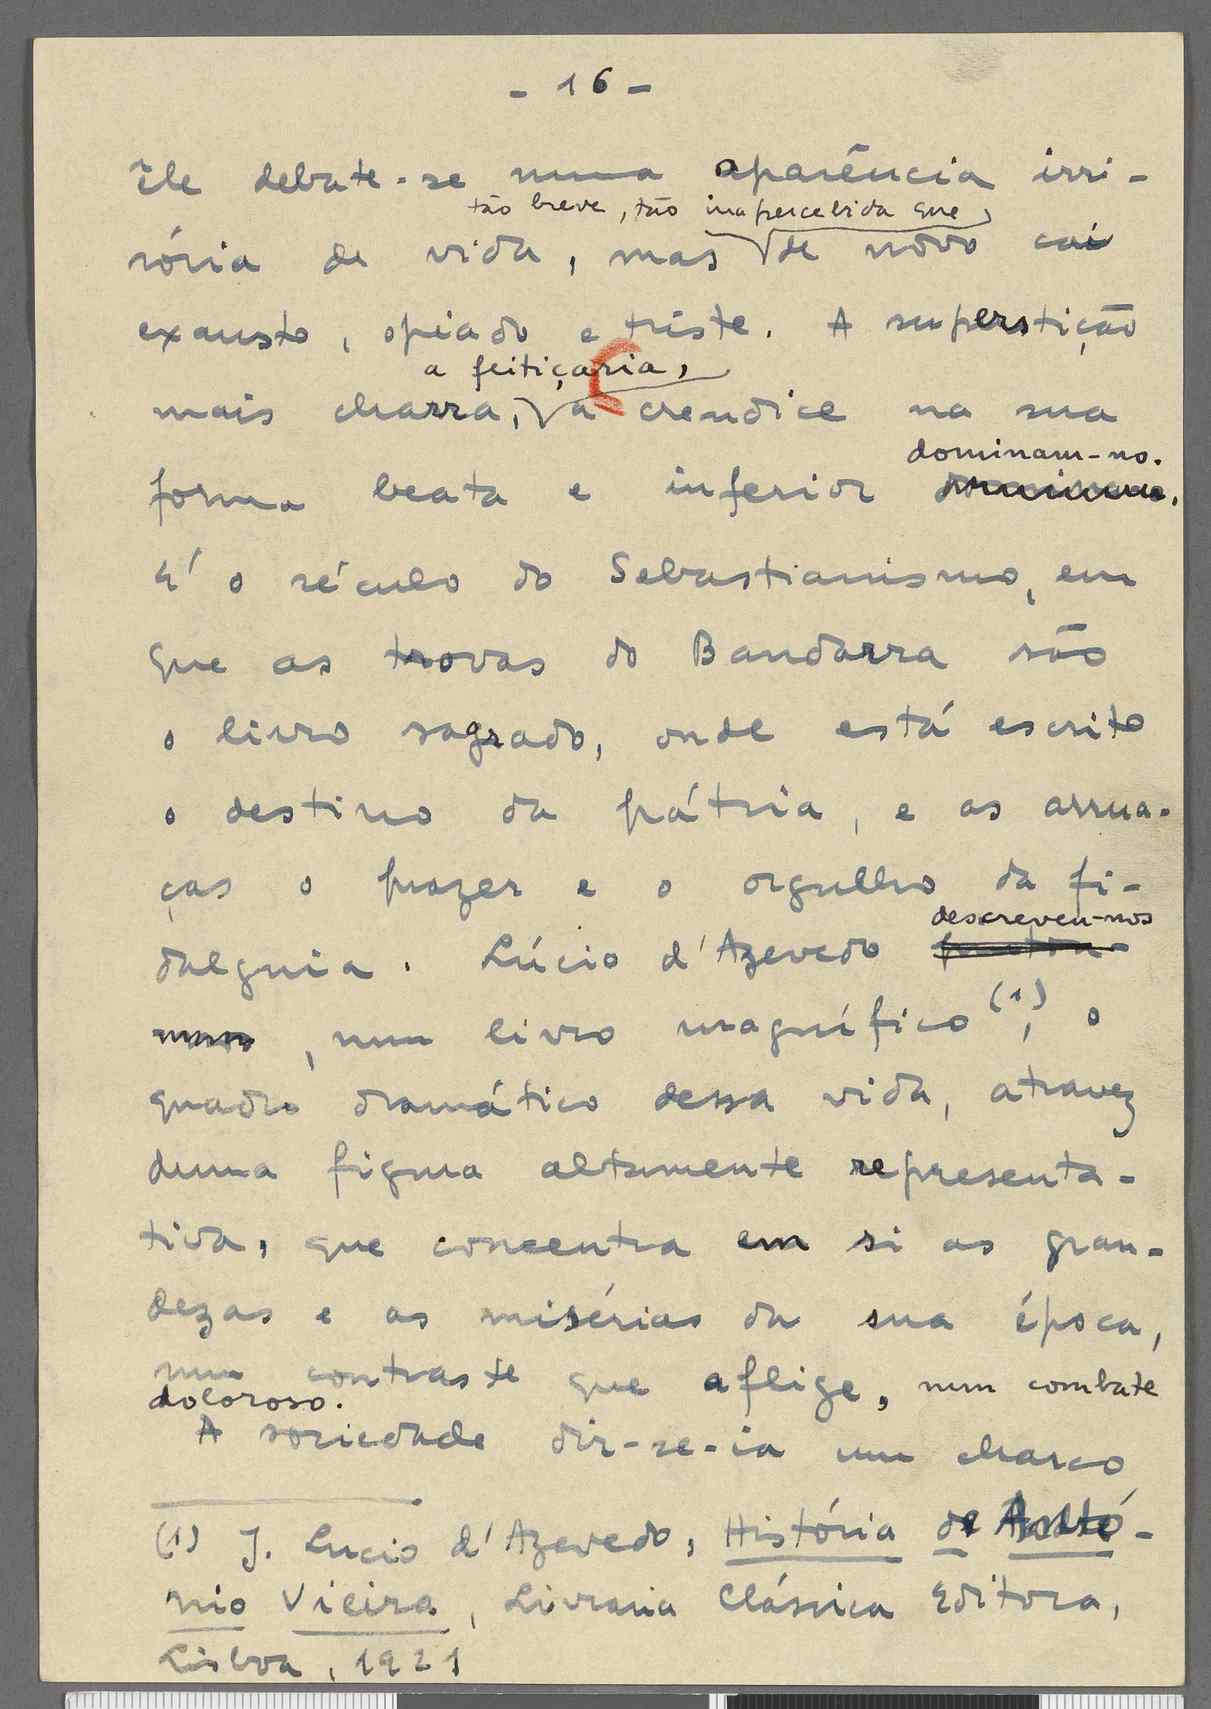 - 16 -
Êle debate-se numa aparência irri-
tão breve, tão inapercebida que
sória de vida, mas de nôvo cai
exausto, opiado e triste. A superstição
a feitiçaria,
mais charra, a crendice na sua
dominam-no.
forma beata e inferior dominam.
E' o século do Sebastianismo, em
que as trovas do Bandarra são
o livro sagrado, onde está escrito
o destino da pátria, e as arrua-
ças o prazer e o orgulho da fi-
descreveu-nos
dalguia. Lúcio d'Azevedo
, num livro magnífico (1), o
quadro dramático dessa vida, atravez
duma figura altamente representa-
tiva, que concentra em si as gran-
dezas e as misérias da sua época,
num contraste que aflige, num combate
doloroso.
A sociedade dir-se-ia um charco
(1) J. Lucio d'Azevedo, História de Antó-
nio Vieira, Livraria Clássica Editora,
Lisboa, 1921